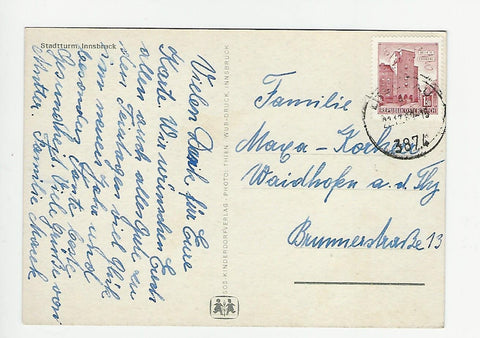 Stadtturm, Innsbruck
Vielen Dank für Eure
Karte. Wir wünschen Euch
allen auch alles Gute zu
den Feiertagen viel Glück
im neuen Jahr und
besonders Tante beste
Gesundheit. Viele Grüße von
Mutter. Familie Marek
SOS-KINDERDORFVERLAG · PHOTO: THIEN, WUB-DRUCK, INNSBRUCK
Familie
Maya-Kocher
Waidhofen a.d. Thy
Brunnerstraße 13
REPUBLIK ÖSTERREICH
3874